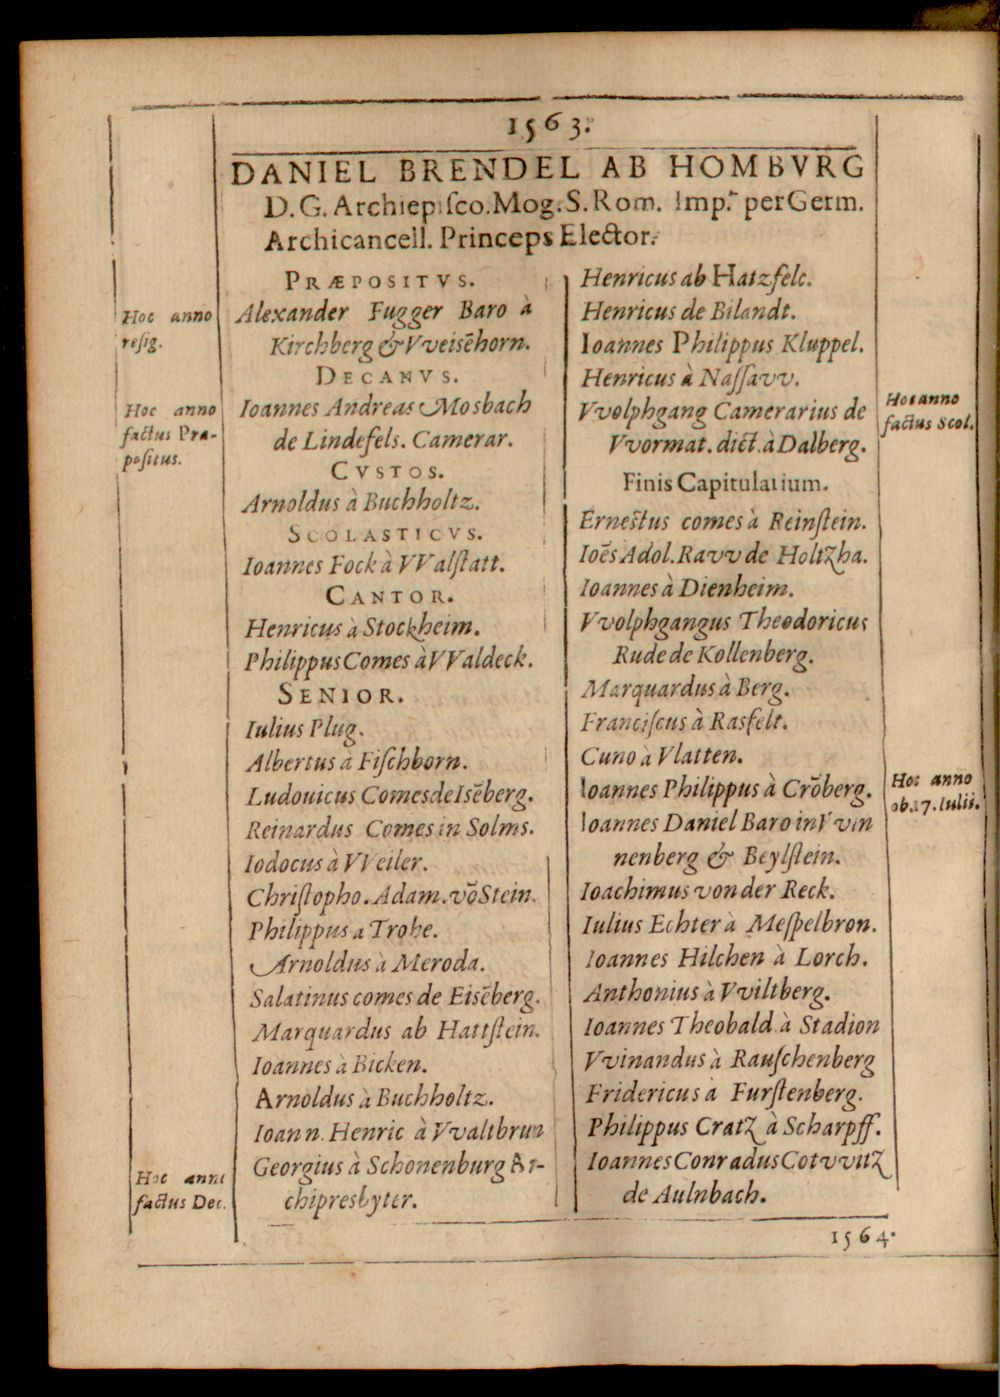 1563.
DANIEL BRENDEL AB HOMBVRG
D.G. Archiepiſco. Mog. S. Rom. Imp. per Germ.
Archicancell. Princeps Elector.
PRÆPOSITVS.
Hoc anno
reſig.
Alexander Fugger Baro à
Kirchberg & Vveisēhorn.
DECANVS.
Hoc anno
factus Præ-
poſitus.
Ioannes Andreas Mosbach
de Lindefels. Camerar.
CVSTOS.
Arnoldus à Buchholtz.
SCOLASTICVS.
Ioannes Fock à VValſtatt.
CANTOR.
Henricus à Stockheim.
Philippus Comes à VValdeck.
SENIOR.
Iulius Plug.
Albertus à Fiſchborn.
Ludouicus Comes de Isēberg.
Reinardus Comes in Solms.
Iodocus à VVeiler.
Chriſtopho. Adam. vō Stein.
Philippus a Trohe.
Arnoldus à Meroda.
Salatinus comes de Eisēberg.
Marquardus ab Hattſtein.
Ioannes à Bicken.
Arnoldus à Buchholtz.
Ioann. Henric à Vvaltbrun
Hoc anno
factus Dec.
Georgius à Schonenburg Ar-
chipresbyter.
Henricus ab Hatzfelt.
Henricus de Bilandt.
Ioannes Philippus Kluppel.
Henricus à Naſſavv.
Vvolphgang Camerarius de
Vvormat. dict. à Dalberg.
Hoc anno
factus Scol.
Finis Capitularium.
Erneſtus comes à Reinſtein.
Ioēs Adol. Ravv de Holtzha.
Ioannes à Dienheim.
Vvolphgangus Theodoricus
Rude de Kollenberg.
Marquardus à Berg.
Franciſcus à Rasfelt.
Cuno à Vlatten.
Ioannes Philippus à Crōberg.
Hoc anno
ob. 17. Iulii.
Ioannes Daniel Baro in Vvin
nenberg & Beylſtein.
Ioachimus von der Reck.
Iulius Echter à Meſpelbron.
Ioannes Hilchen à Lorch.
Anthonius à Vviltberg.
Ioannes Theobald à Stadion
Vvinandus à Rauſchenberg
Fridericus à Furſtenberg.
Philippus Cratz à Scharpff.
Ioannes Conradus Cotvvitz
de Aulnbach.
1564.